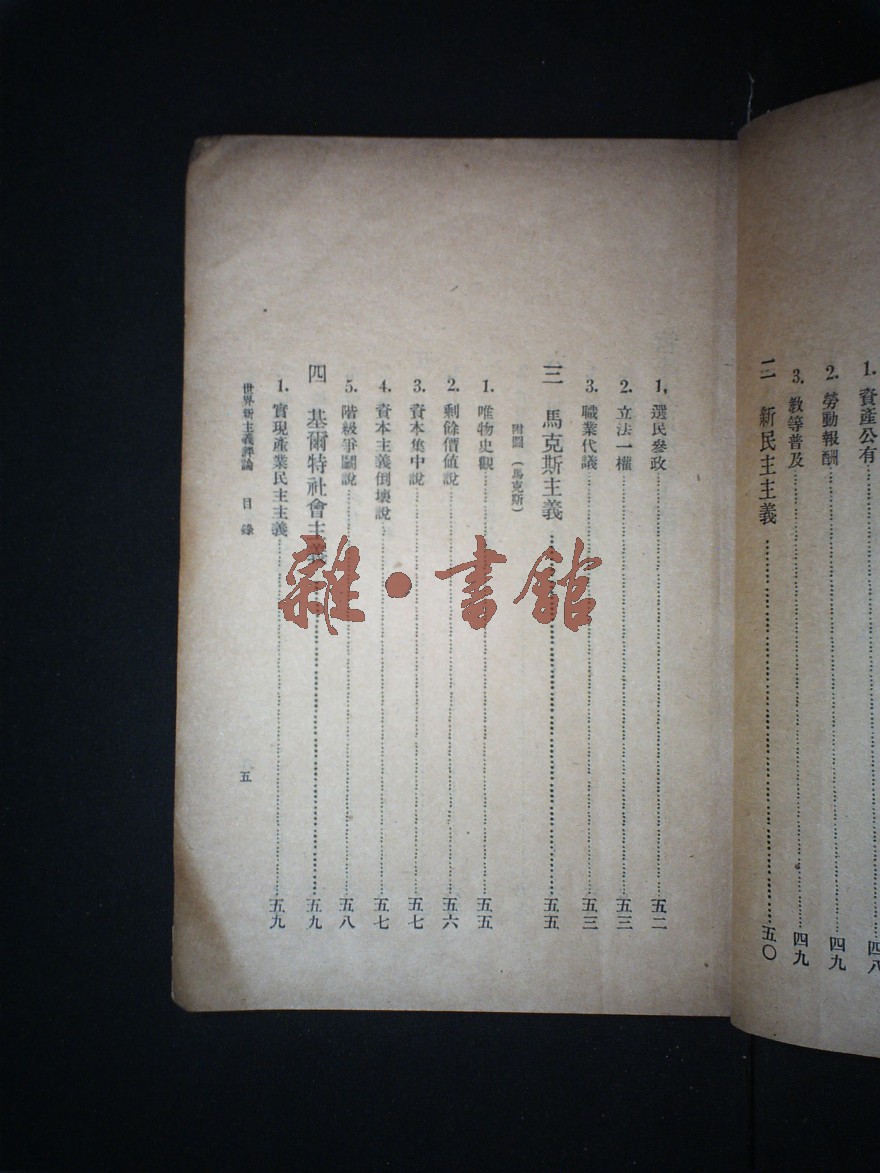 1. 資產公有……四八
2. 勞動報酬……四九
3. 教等普及……四九
二 新民主主義……五〇
1. 選民參政……五二
2. 立法一權……五三
3. 職業代議……五三
三 馬克斯主義……五五
附圖 (馬克斯)
1. 唯物史觀……五五
2. 剩餘價値說……五六
3. 資本集中說……五七
4. 資本主義倒壞說……五七
5. 階級爭鬭說……五八
四 基爾特社會主義……五九
1. 實現產業民主主義……五九
世界新主義評論 目錄 五
雜·書館